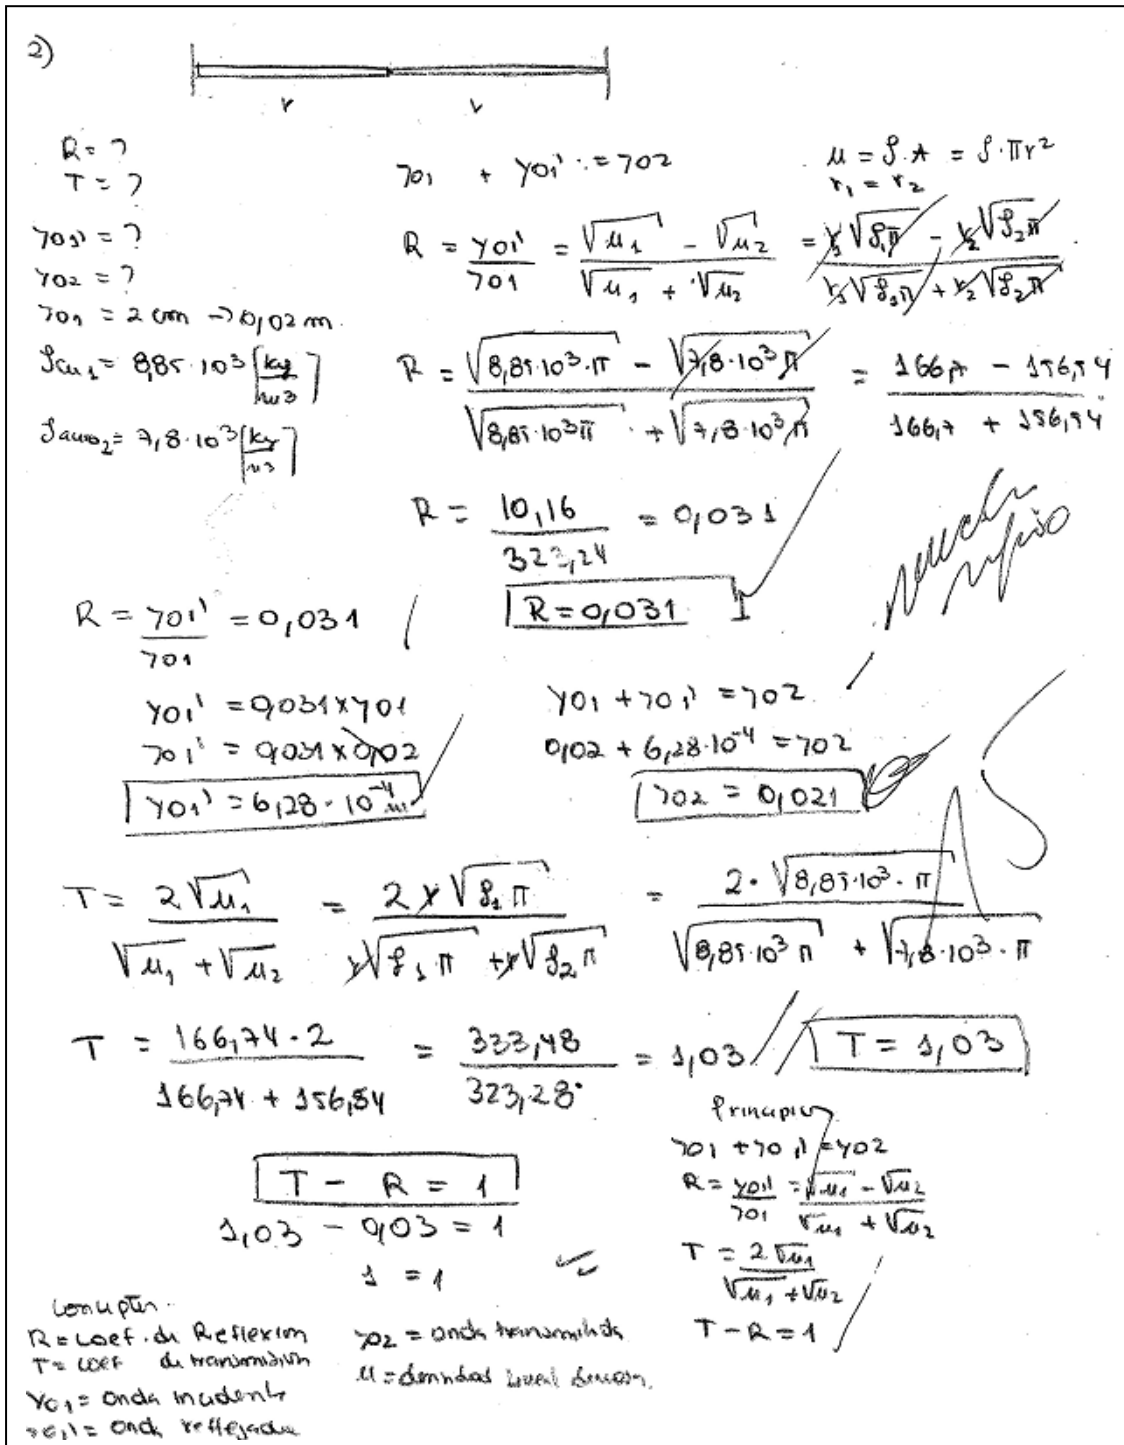 2)
r r
R = ?
T = ?
y01' = ?
y02 = ?
y01 = 2 cm -> 0,02 m.
ρcu1 = 8,85·10³ [kg/m³]
ρacero2 = 7,8·10³ [kg/m³]
y01 + y01' = y02
μ = ρ·A = ρ·πr²
r1 = r2
R = y01'/y01 = (√μ1 - √μ2)/(√μ1 + √μ2) = (r1√ρ1π - r2√ρ2π)/(r1√ρ1π + r2√ρ2π)
R = (√8,85·10³·π - √7,8·10³π)/(√8,85·10³π + √7,8·10³π) = (166,7 - 156,54)/(166,7 + 156,54)
R = 10,16/323,24 = 0,031
R = 0,031
R = y01'/y01 = 0,031
y01' = 0,031 x y01
y01' = 0,031 x 0,02
y01' = 6,28·10⁻⁴ m
y01 + y01' = y02
0,02 + 6,28·10⁻⁴ = y02
y02 = 0,021
T = 2√μ1/(√μ1 + √μ2) = 2r√ρ1π/(r√ρ1π + r√ρ2π) = 2·√8,85·10³·π/(√8,85·10³π + √7,8·10³·π)
T = 166,74·2/(166,74 + 156,54) = 333,48/323,28 = 1,03
T = 1,03
T - R = 1
1,03 - 0,03 = 1
1 = 1
Principios
y01 + y01' = y02
R = y01'/y01 = (√μ1 - √μ2)/(√μ1 + √μ2)
T = 2√μ1/(√μ1 + √μ2)
T - R = 1
R = coef. de Reflexion
T = coef de transmision
y01 = onda incidente
y01' = onda reflejada
y02 = onda transmitida
μ = densidad lineal